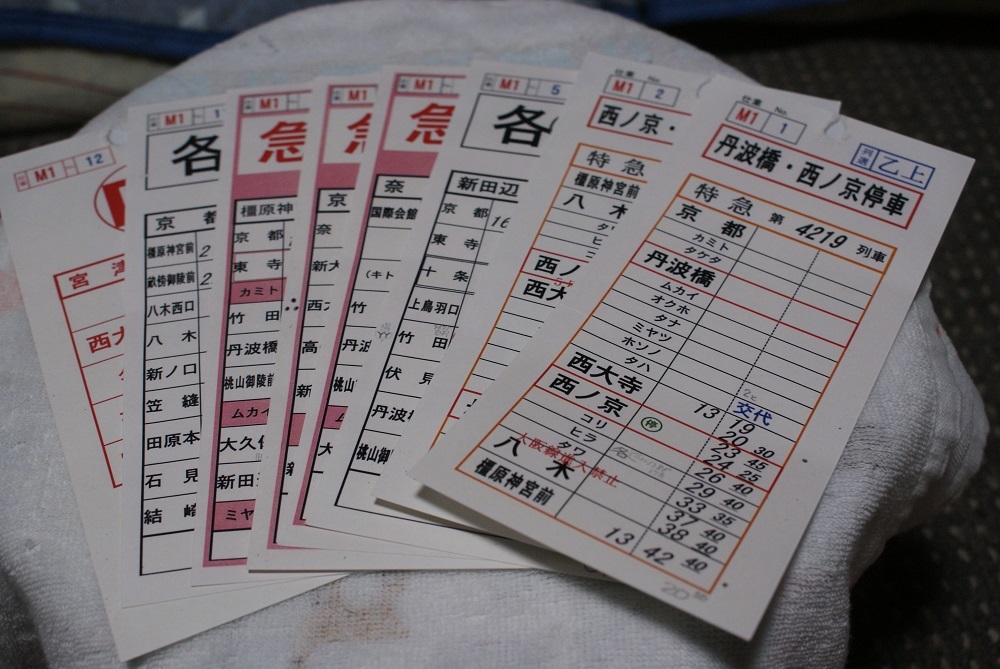 M1 12
宮
西大
M1 1
各
京都
橿原神宮前 2
畝傍御陵前 2
八木西口
八木
新ノ口
笠縫
田原本
石見
結崎
M1
急
橿原神
京都
東寺
カミト
竹田
丹波橋
桃山御陵前
ムカイ
大久
新田
ミヤ
M1
急
京
奈
新大
西
高
新
M1
急
奈
国際会館
(キト
竹
丹
桃山
M1 5
各
新田辺
京都 16
東寺
十条
上鳥羽口
竹田
伏見
丹波
桃山御
仕業 No.
M1 2
西ノ京・
特急
橿原神宮前
八木
西ノ
西大
仕業 No.
M1 1
乙上
丹波橋・西ノ京停車
特急 第 4219 列車
京都
カミト
タケタ
丹波橋
ムカイ
オクホ
タナ
ミヤツ
ホソノ
タハ
西大寺 13 交代
19
西ノ京 停 20 30
コリ 23 45
ヒラ 24 25
タワ 26 40
大阪線進入禁止
八木
29 40
33 35
37 40
38 40
橿原神宮前 13 42 40